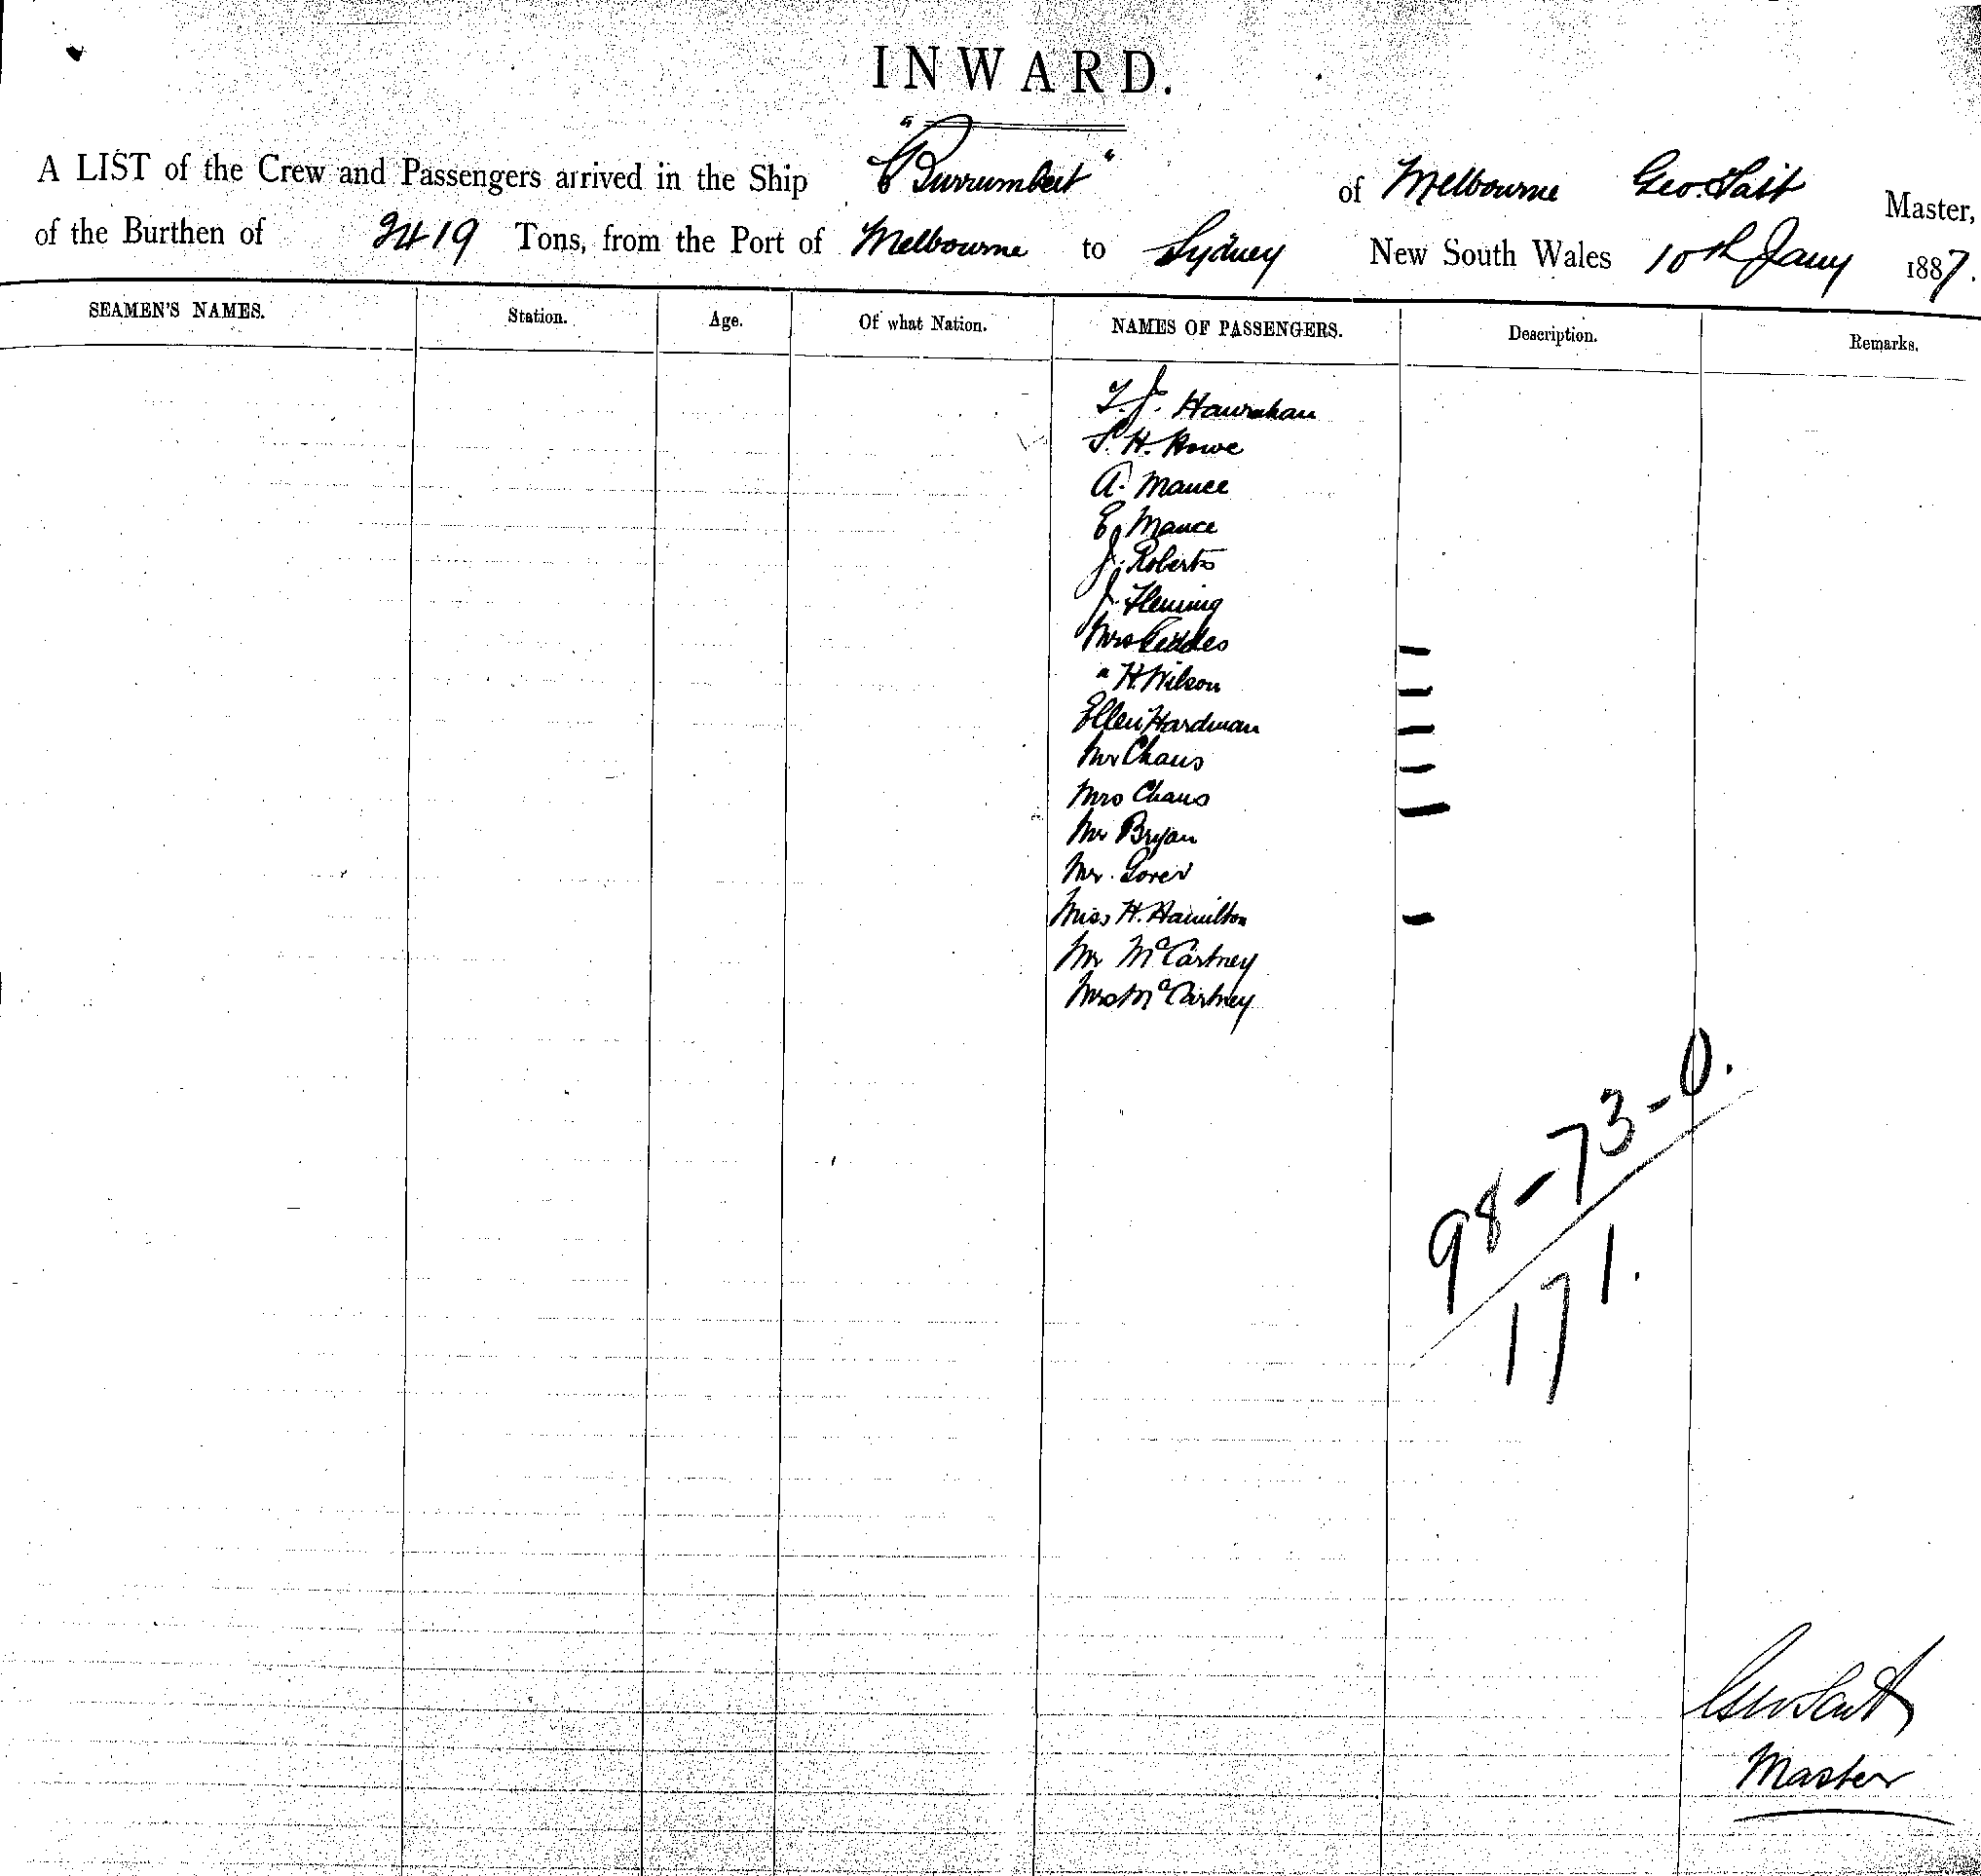 INWARD.
A LIST of the Crew and Passengers arrived in the Ship "Burrumbeet" of Melbourne Geo. Tait Master,
of the Burthen of 2419 Tons, from the Port of Melbourne to Sydney New South Wales 10th Jany 1887.
SEAMEN'S NAMES. Station. Age. Of what Nation. NAMES OF PASSENGERS. Description. Remarks.
T. J. Hanrahan
S. H. Howe
A. Mance
E. Mance
J. Roberts
J. Fleming
Mrs Geddes
" H. Wilson
Ellen Hardman
Mr Chans
Mrs Chans
Mr Bryan
Mr.
Miss H. Hamilton
Mr McCartney
Mrs McCartney
98-73-0.
171.
Geo Tait
Master